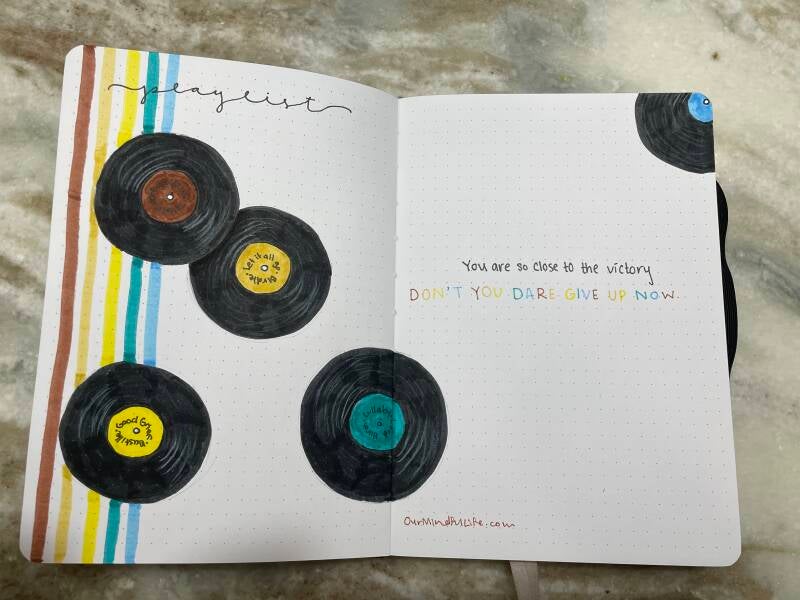 playlist
Let it all go
Birdie
Good Grief
Bastille
You are so close to the victory
DON'T YOU DARE GIVE UP NOW.
OurMindfulLife.com